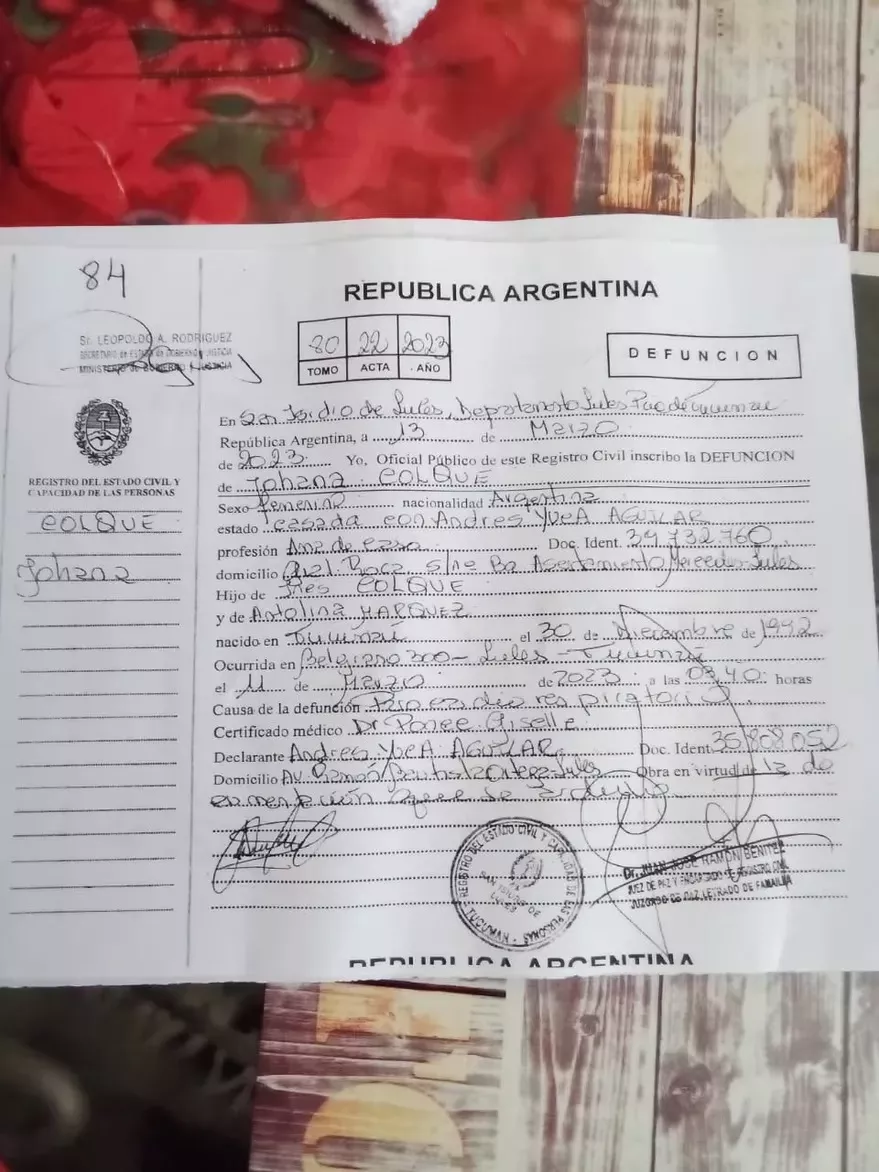 84
Sr. LEOPOLDO A. RODRIGUEZ
SECRETARIO de ESTADO de GOBIERNO y JUSTICIA
MINISTERIO de GOBIERNO y JUSTICIA
REGISTRO DEL ESTADO CIVIL Y
CAPACIDAD DE LAS PERSONAS
COLQUE
Johana
REPUBLICA ARGENTINA
80 22 2023
TOMO ACTA AÑO
DEFUNCION
En San Isidro de Lules, Departamento Lules
República Argentina, a 13 de Marzo
de 2023. Yo, Oficial Público de este Registro Civil inscribo la DEFUNCION
de Johana COLQUE
Sexo femenino nacionalidad Argentina
estado casada con Andres YvcA AGUILAR
profesión Ama de casa Doc. Ident.
domicilio Gral. Roca s/nº Bº Asentamiento Mercedes Lules
Hijo de COLQUE
y de Antolina MARQUEZ
nacido en Tucumán el 30 de Diciembre de 1992
Ocurrida en Belgrano 300 - Lules - Tucumán
el 11 de Marzo de 2023 a las 03,40 horas
Causa de la defunción Paro cardio respiratorio
Certificado médico Dr Ponce Giselle
Declarante Andres YvcA AGUILAR Doc. Ident. 35.808.052
Domicilio Av. Ramón Lules Obra en virtud de
REGISTRO DEL ESTADO CIVIL Y CAPACIDAD DE LAS PERSONAS
SAN ISIDRO DE
LULES
TUCUMAN
Dr. JUAN JOSE RAMÓN BENITEZ
JUEZ DE PAZ Y ENCARGADO DE REGISTRO CIVIL
JUZGADO DE PAZ LETRADO DE FAMAILLA
REPUBLICA ARGENTINA